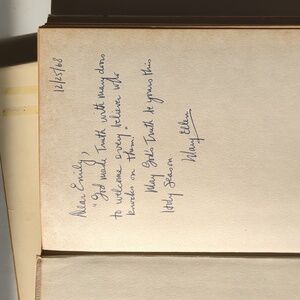 12/25/68
Dear Emily,
"God made Truth with many doors
to welcome every believer who
knocks on them."
May God's Truth be yours this
Holy Season
Mary Ellen